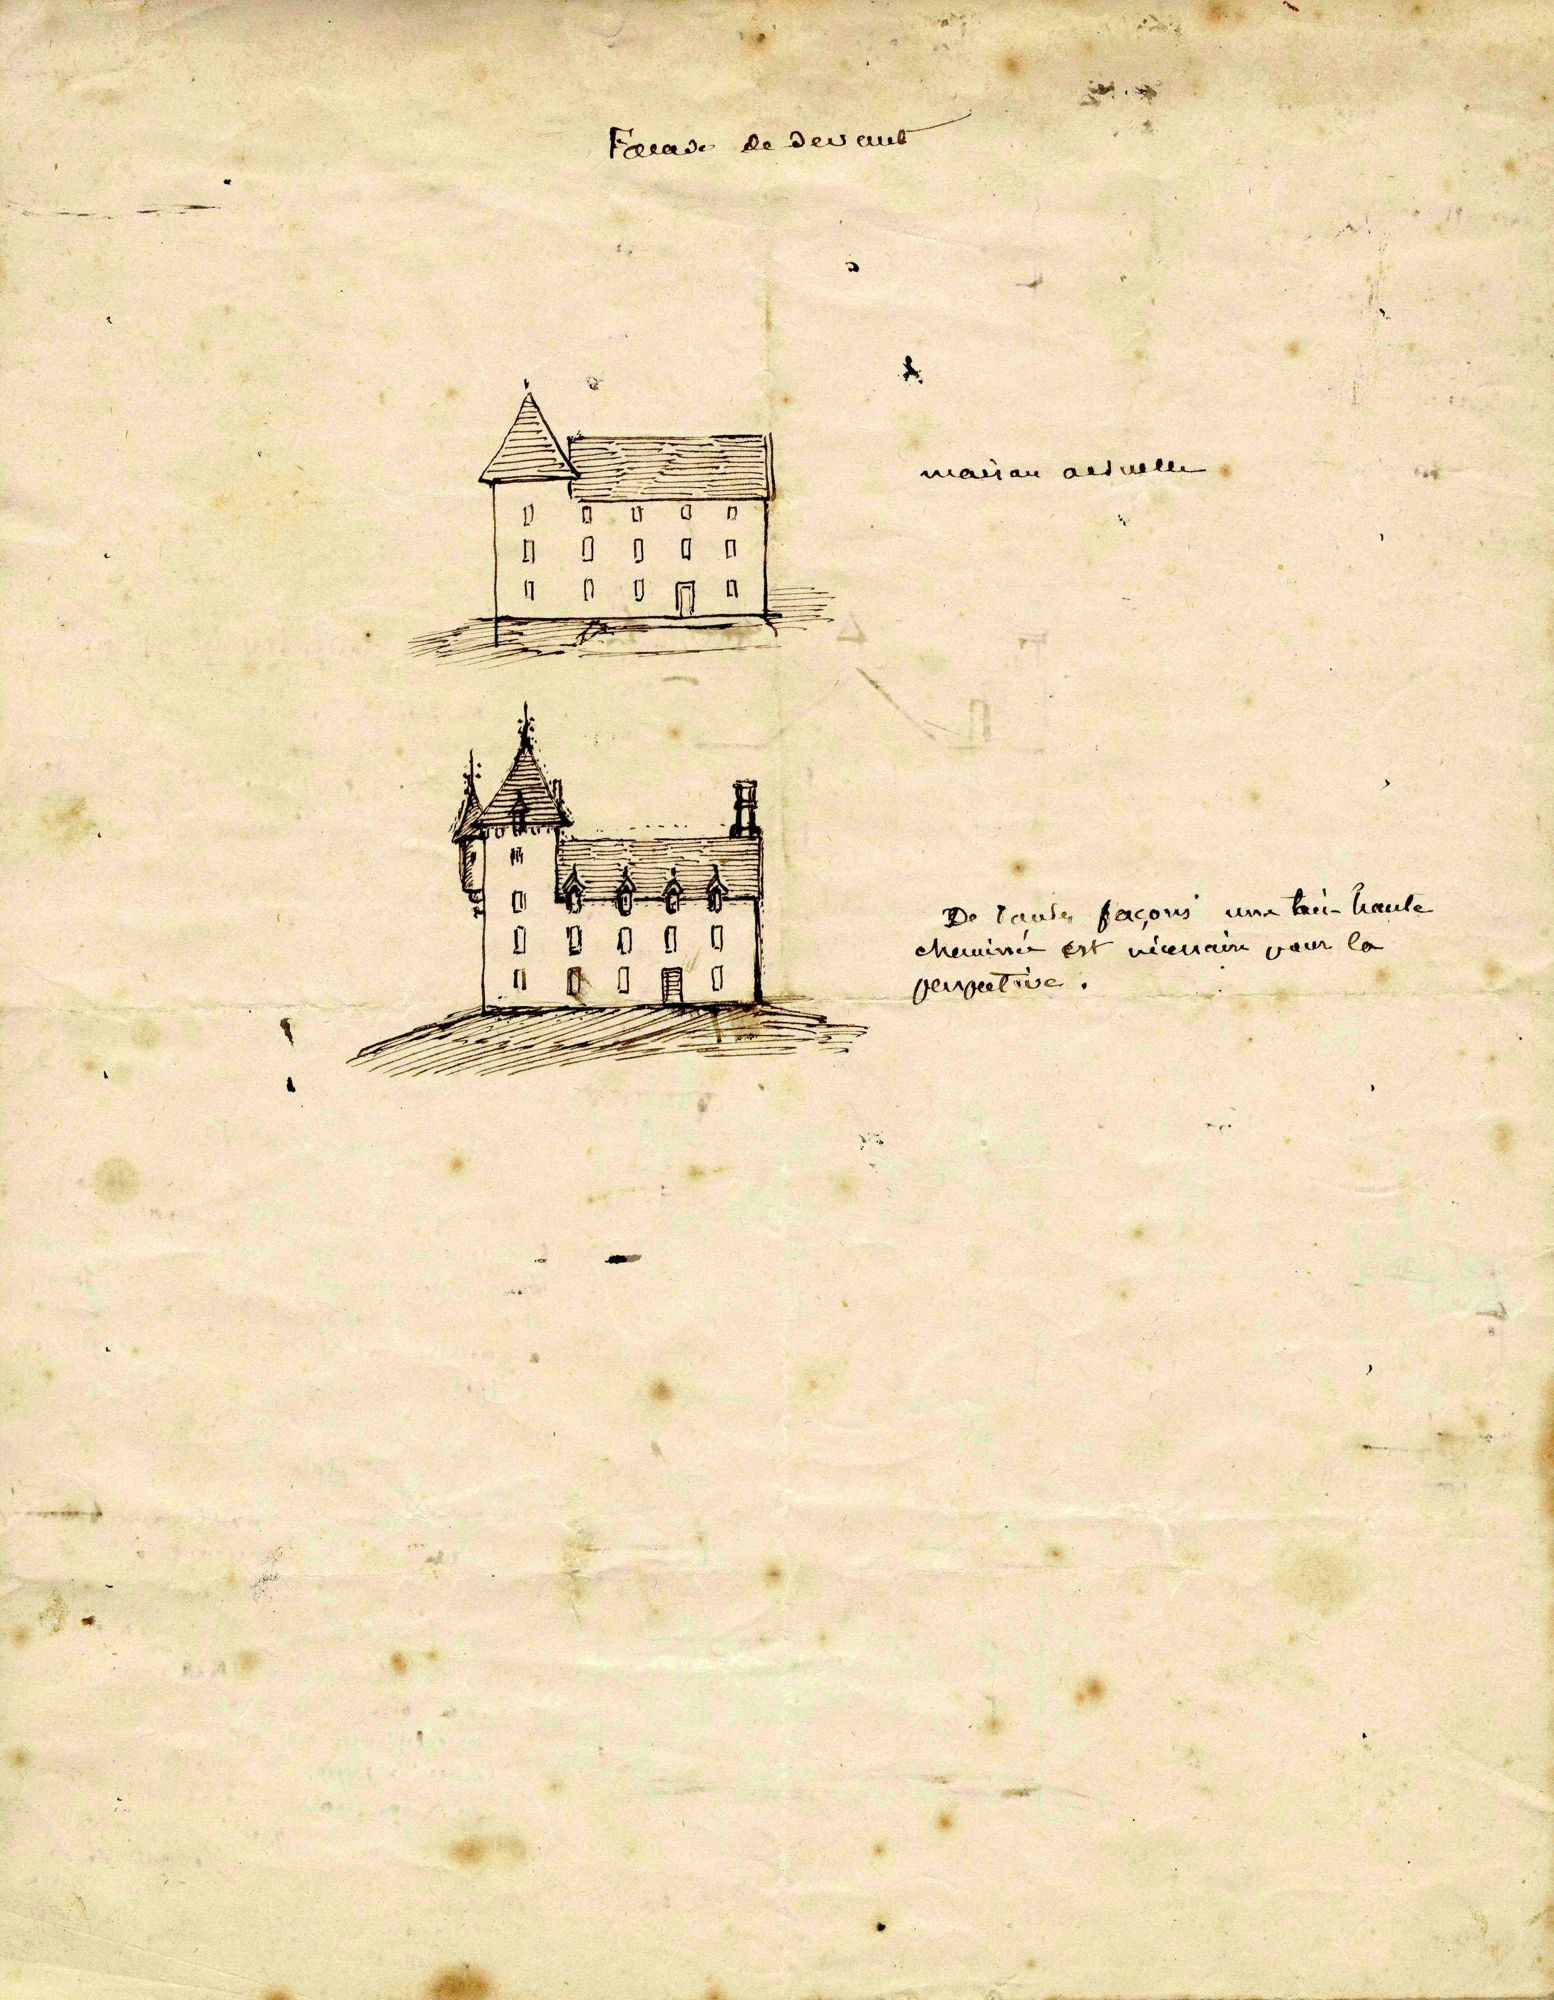 Facade de devant
maison actuelle
De toutes façons une très haute
cheminée est nécessaire pour la
perspective.